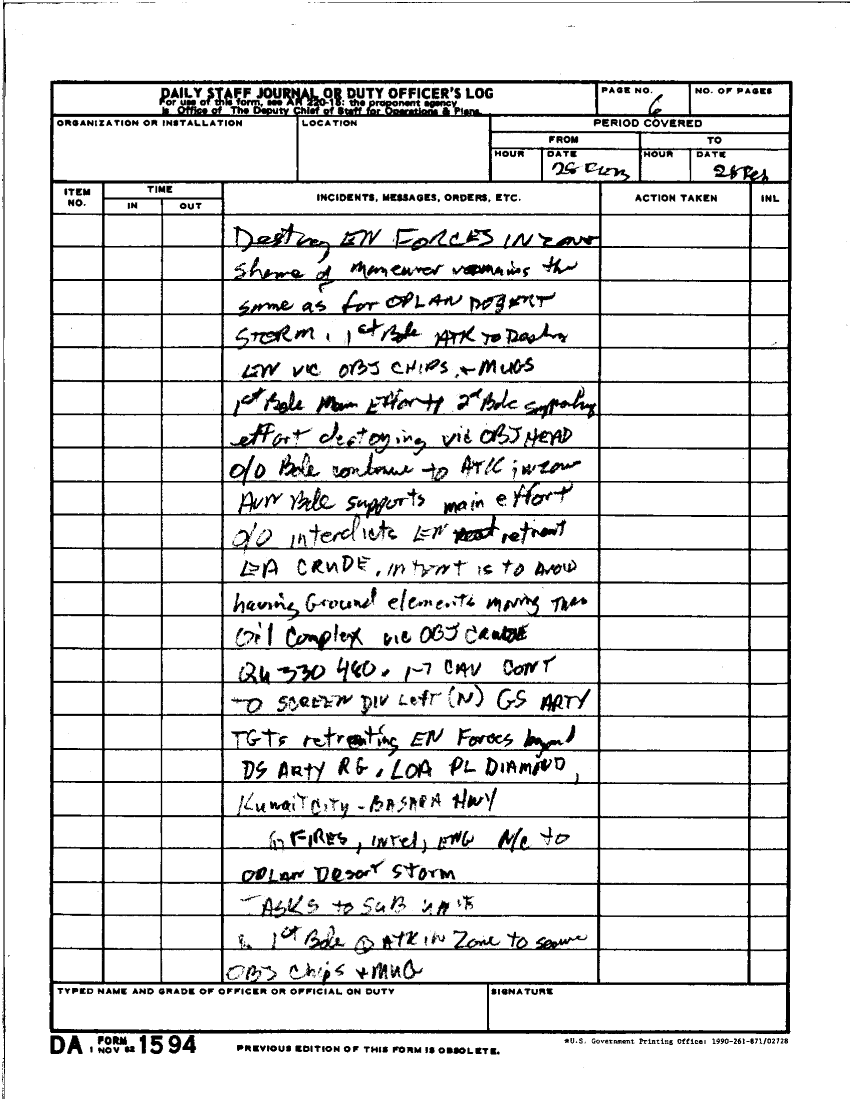 DAILY STAFF JOURNAL OR DUTY OFFICER'S LOG
For use of this form, see AR 220-15; the proponent agency
is Office of The Deputy Chief of Staff for Operations & Plans.
PAGE NO.
6
NO. OF PAGES
ORGANIZATION OR INSTALLATION
LOCATION
PERIOD COVERED
FROM
TO
HOUR
DATE
HOUR
DATE
28 Feb
ITEM NO.
TIME
IN
OUT
INCIDENTS, MESSAGES, ORDERS, ETC.
ACTION TAKEN
INL
Destroy EN FORCES IN zone
sheme of maneuver remains the
same as for OPLAN DESERT
STORM. 1st Bde ATK to Destroy
EN VIC OBJ CHIPS + MUGS
1st Bde Main Effort 2nd Bde supporting
effort destoying vic OBJ HEAD
O/O Bde continue to ATK in zone
AVN Bde supports main effort
O/O interdicts EN retreat
EA CRUDE, intent is to AVOID
having Ground elements moving thru
Oil Complex vic OBJ CRUDE
QU 330 460. 1-7 CAV CONT
TO SCREEN DIV Left (N) GS ARTY
TGTs retreating EN Forces beyond
DS ARTY RG, LOA PL DIAMOND,
Kuwait City - BASARA HWY
FIRES, Intel, ENG N/C to
OPLAN Desert Storm
TASKS to SUB units
1st Bde ① ATK IN Zone to secure
OBJ Chips + MUG
TYPED NAME AND GRADE OF OFFICER OR OFFICIAL ON DUTY
SIGNATURE
DA FORM 1 NOV 62 1594
PREVIOUS EDITION OF THIS FORM IS OBSOLETE.
*U.S. Government Printing Office: 1990-261-871/02728